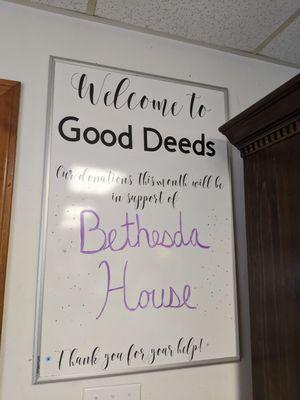 Welcome to
Good Deeds
Our donations this month will be
in support of
Bethesda
House
Thank you for your help!